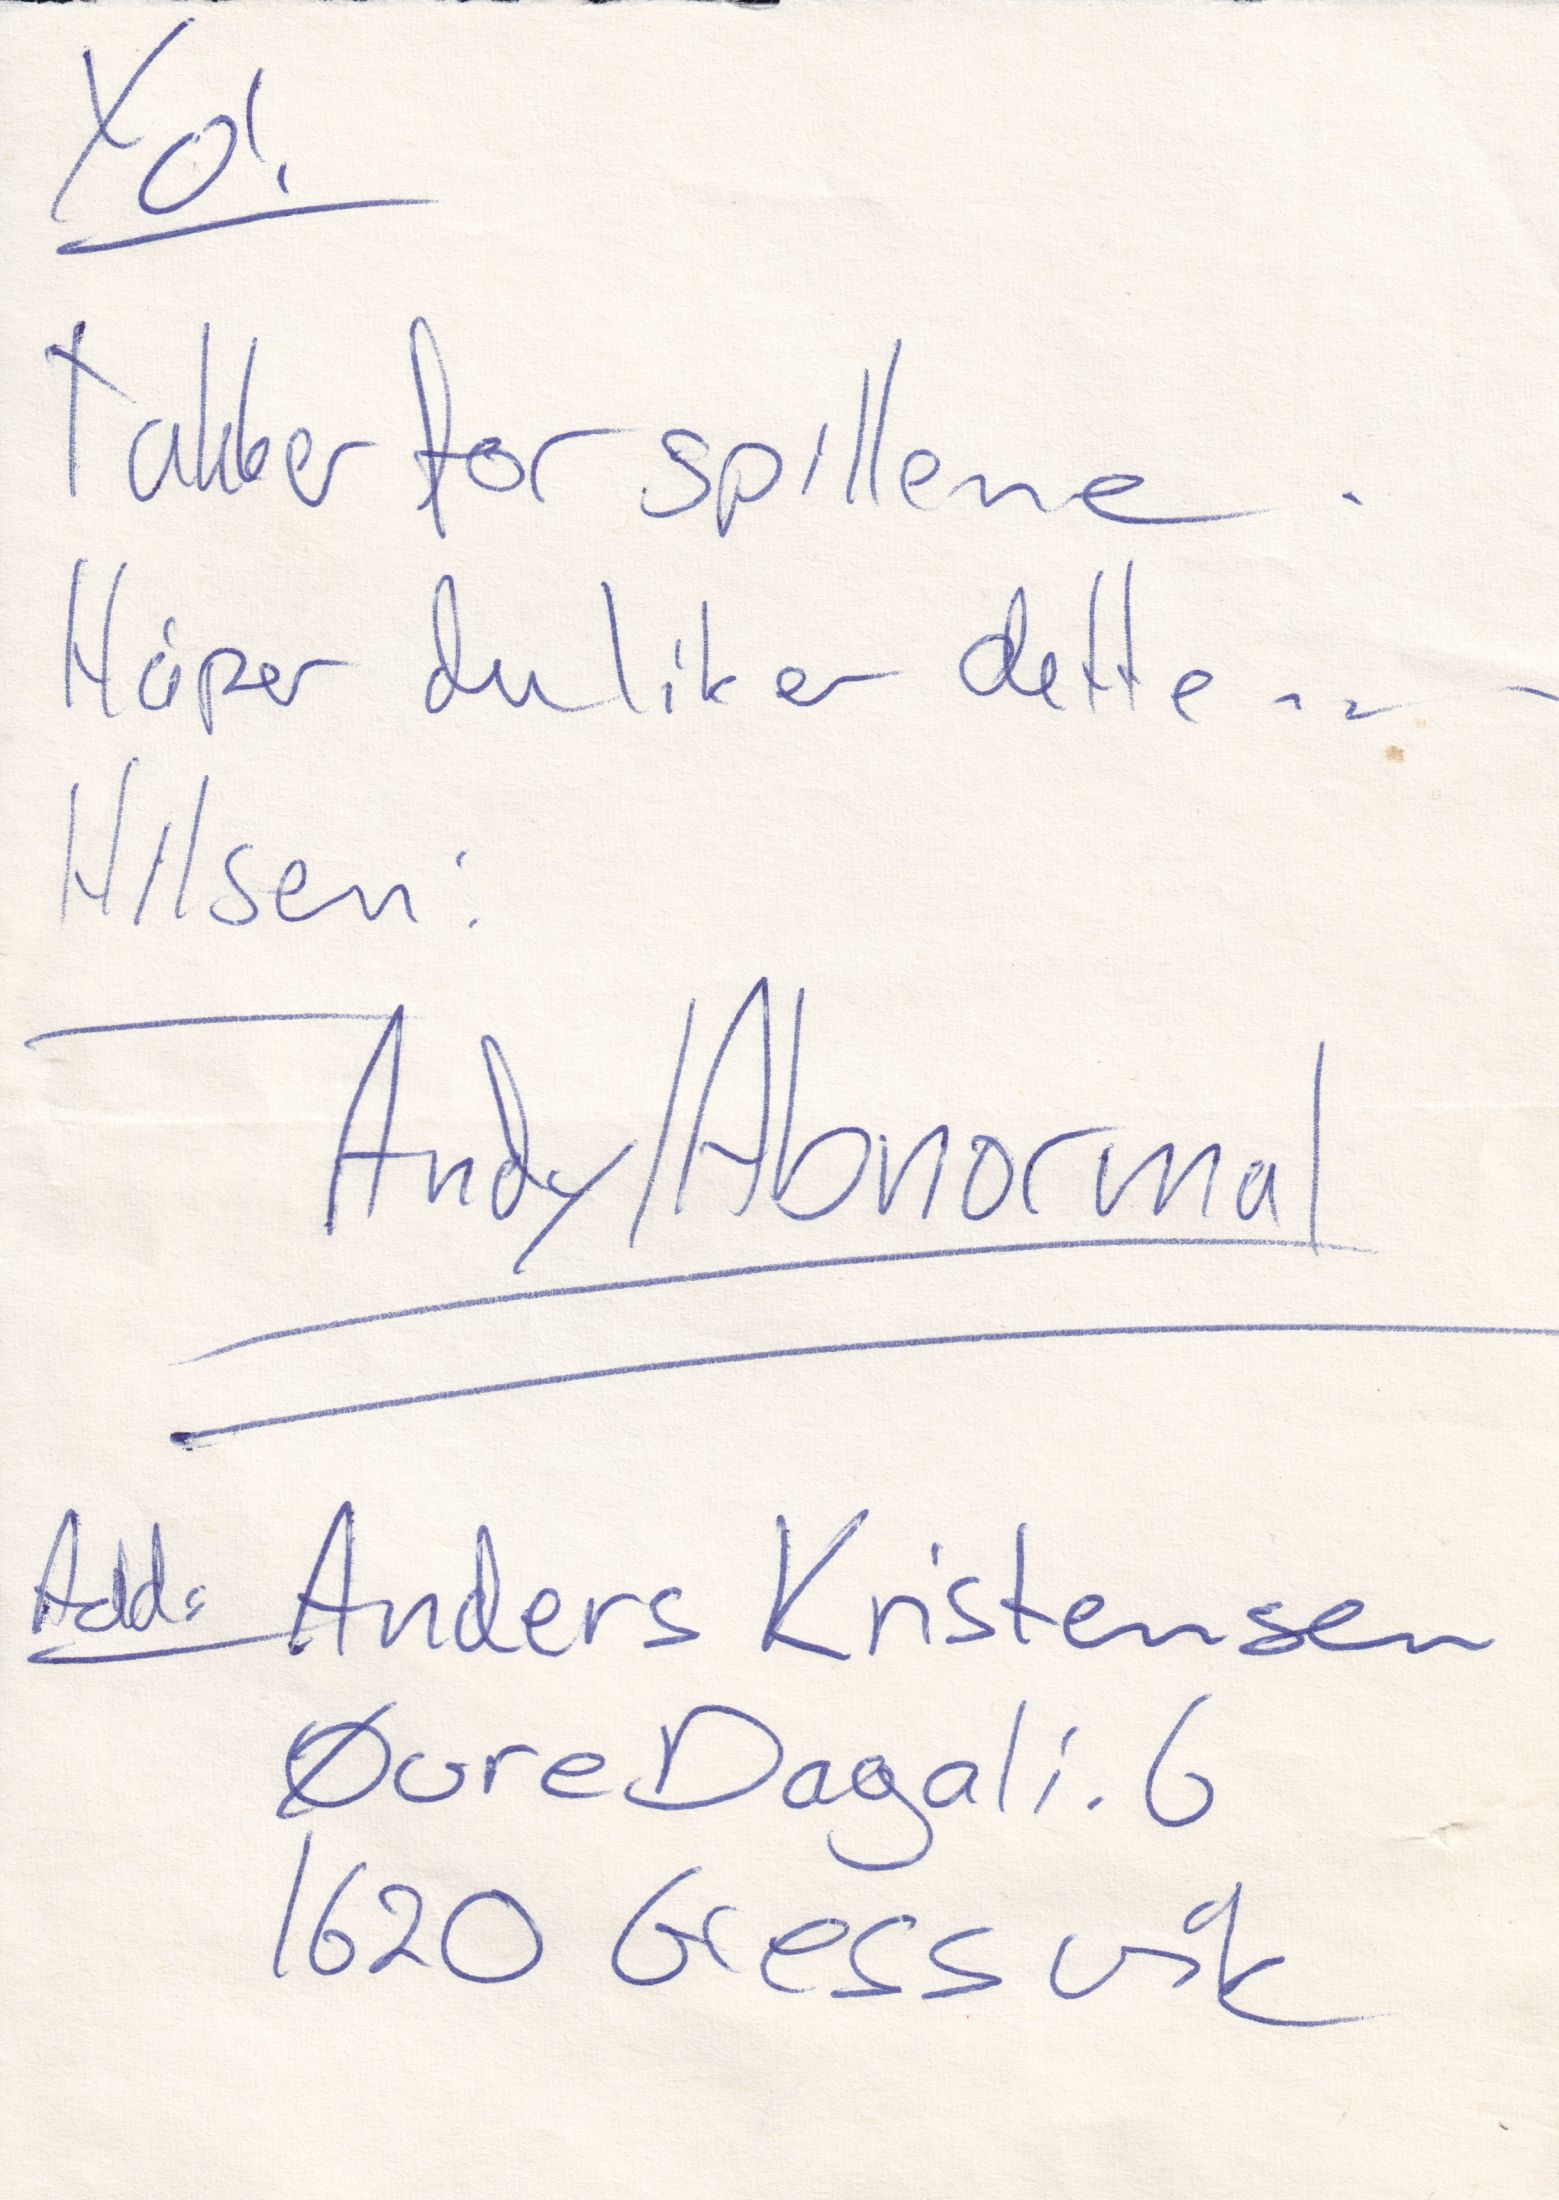 Yo!
Takker for spillene.
Håper du liker dette...
Hilsen:
Andy/Abnormal
Add: Anders Kristensen
Øvre Dagali. 6
1620 Gressvik